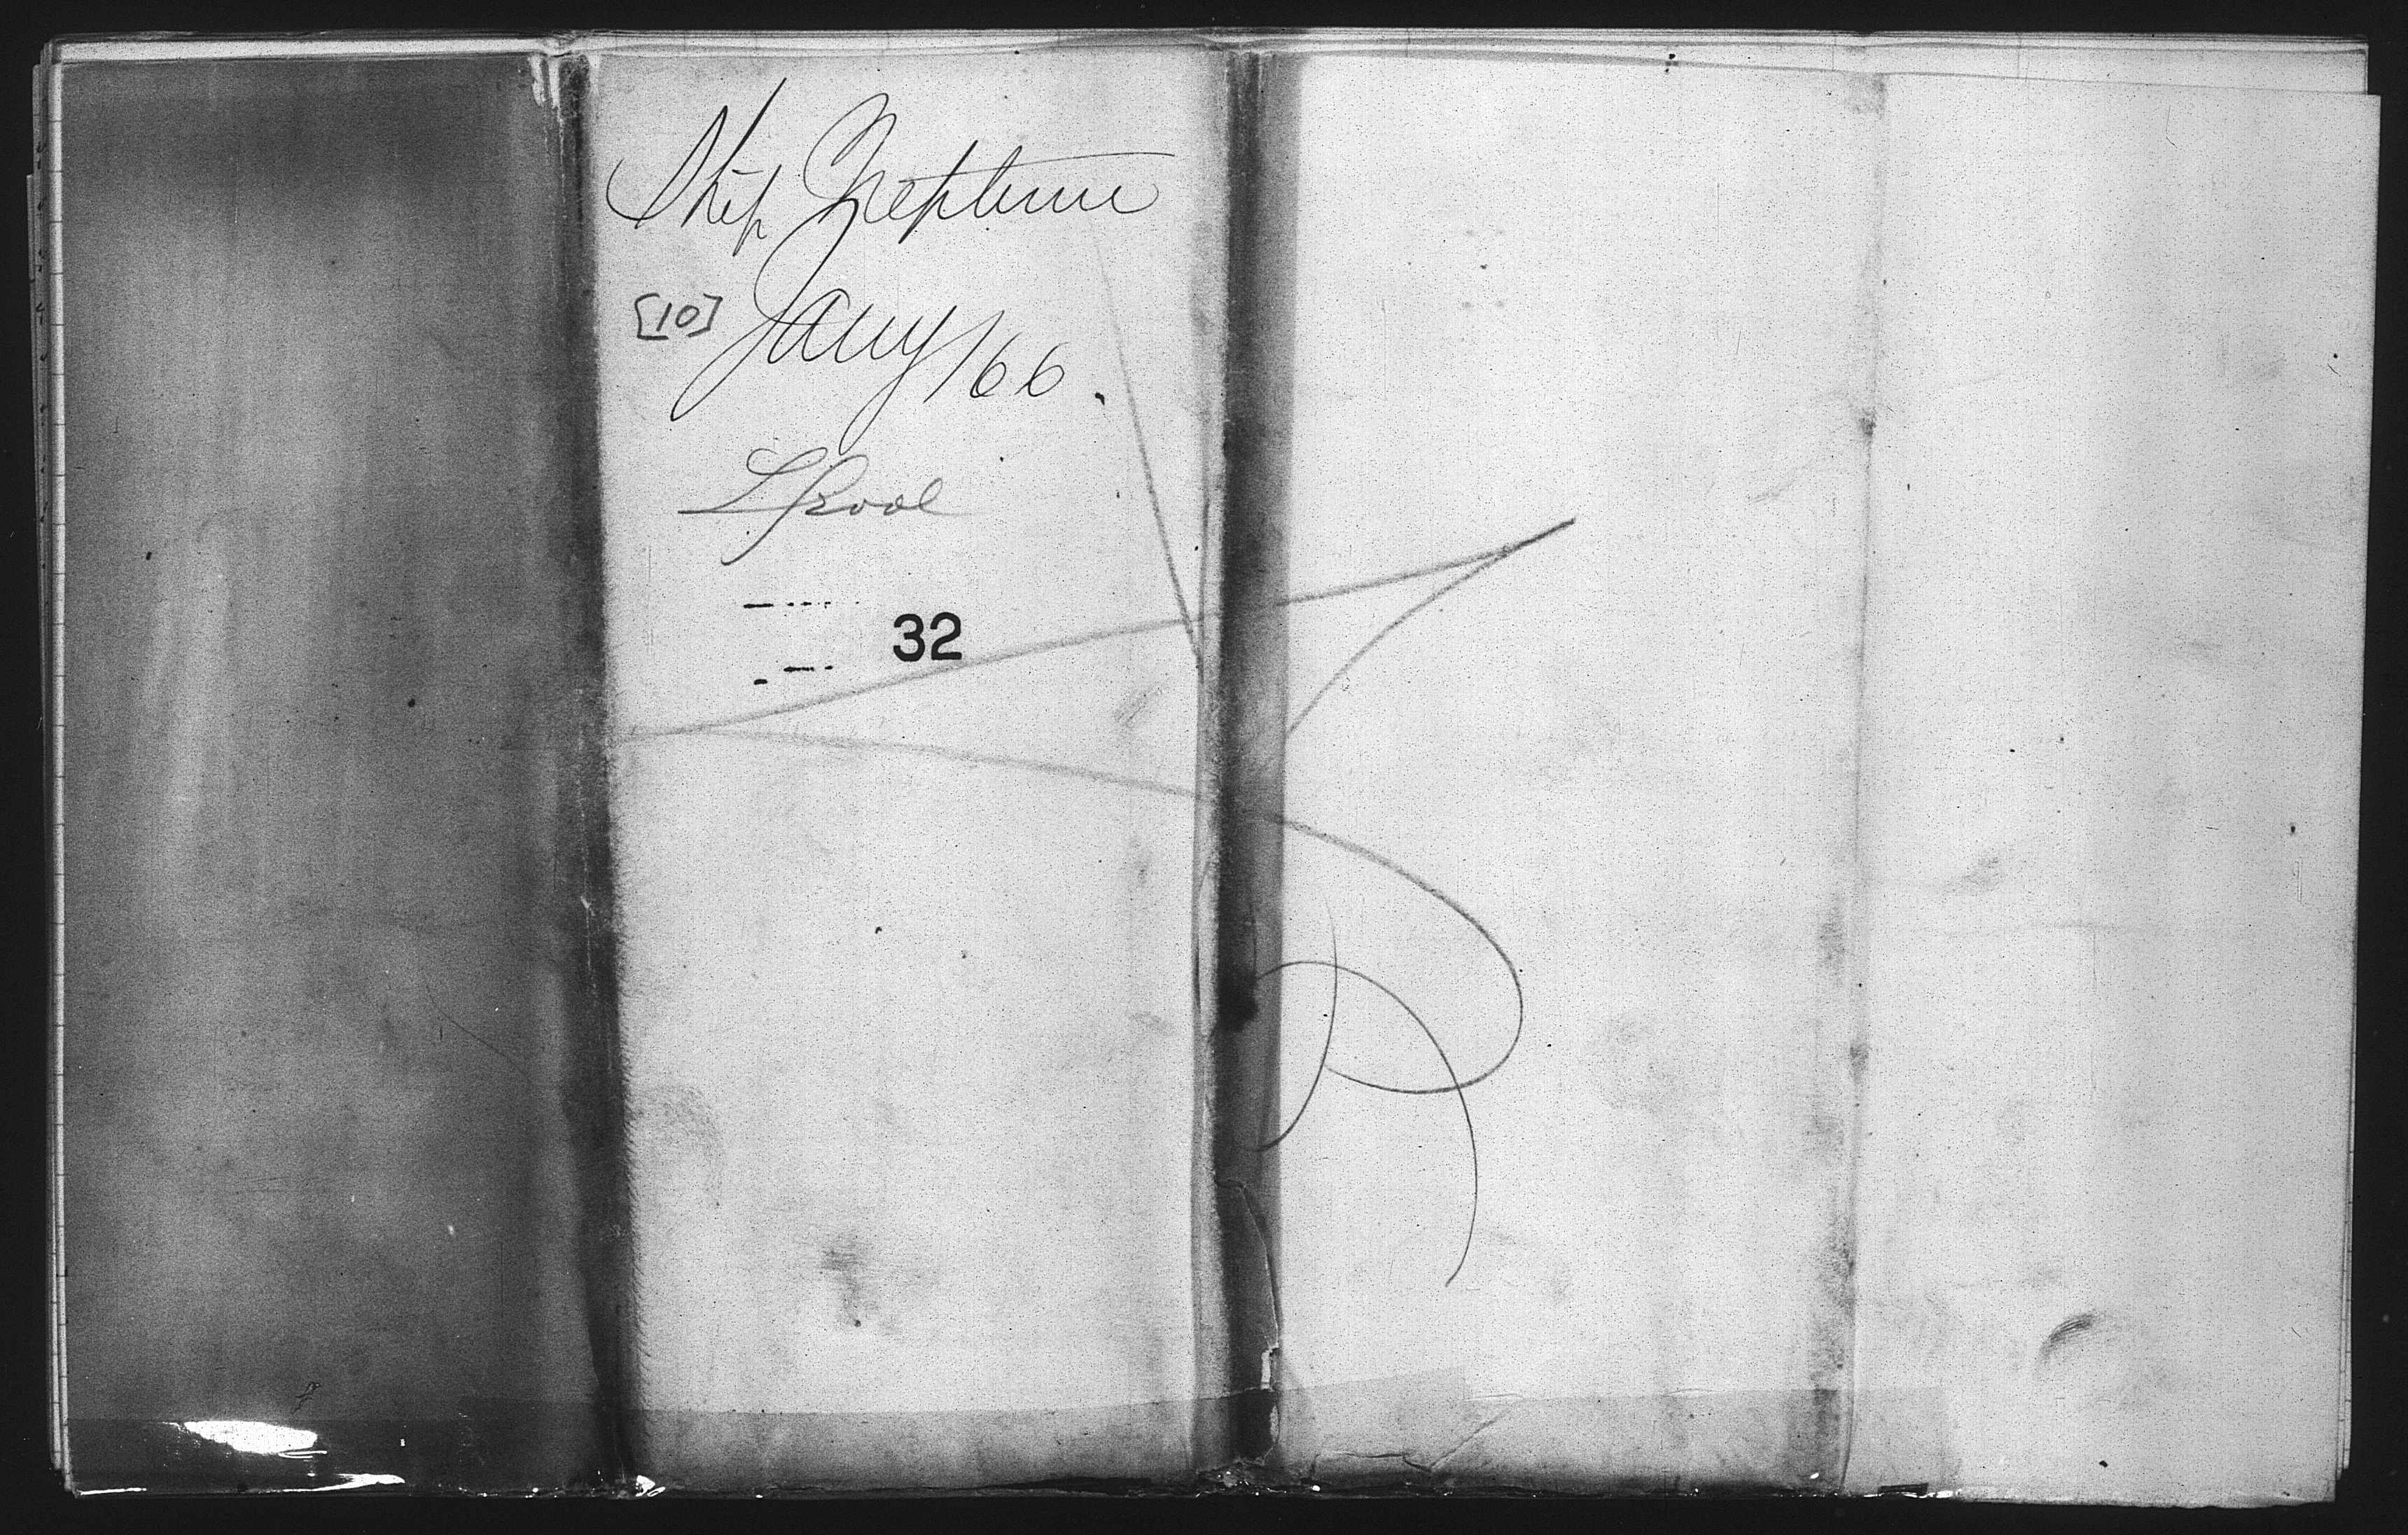 Ship Neptune
[10] Jany/66.
Lpool
32